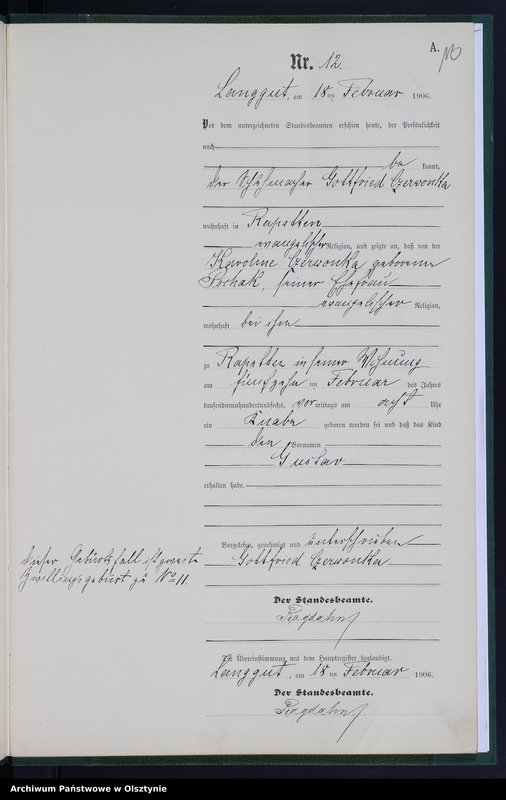 A.
Nr. 12.
Langgut, am 18 ten Februar 1906.
Vor dem unterzeichneten Standesbeamten erschien heute, der Persönlichkeit
nach
be kannt,
der Schuhmacher Gottfried Czerwonka
wohnhaft in Rapatten
evangelischer Religion, und zeigte an, daß von der
Karoline Czerwonka geborenen
seiner Ehefrau
evangelischer Religion,
wohnhaft bei ihm
zu Rapatten in seiner Wohnung
am fünfzehn ten Februar des Jahres
tausendneunhundertundsechs, vor mittags um acht Uhr
ein Knabe geboren worden sei und daß das Kind
den Vornamen
Gustav
erhalten habe.
Vorgelesen, genehmigt und unterschrieben
Gottfried Czerwonka
dieser Geburtsfall ist zweite
Zwillingsgeburt zu No 11.
Der Standesbeamte.
Die Übereinstimmung mit dem Hauptregister beglaubigt.
Langgut, am 18 ten Februar 1906.
Der Standesbeamte.
Archiwum Państwowe w Olsztynie